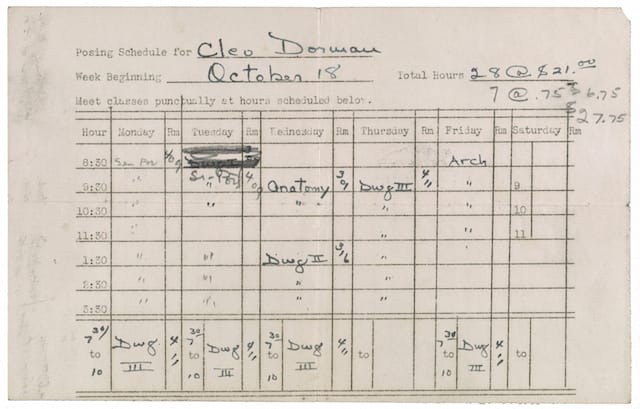 Posing Schedule for Cleo Dorman
Week Beginning October 18 Total Hours 28 @ $21.00
7 @ .75 $6.75
Meet classes punctually at hours scheduled below. $27.75
Hour Monday Rm Tuesday Rm Wednesday Rm Thursday Rm Friday Rm Saturday Rm
8:30 Sen Por 4/09 Arch
Sr-Por 4/09
9:30 " " Anatomy 3/9 Dwg III 4/11 " 9
10:30 " " " " " 10
11:30 " " " " 11
1:30 " " Dwg II 3/6 "
2:30 " " " "
3:30 " " " "
7 30/ to 10 Dwg III 4/11 7 30 to 10 Dwg III 4/11 7 30 to 10 Dwg III 4/11 to 7 30 to 10 Dwg III 4/11 to